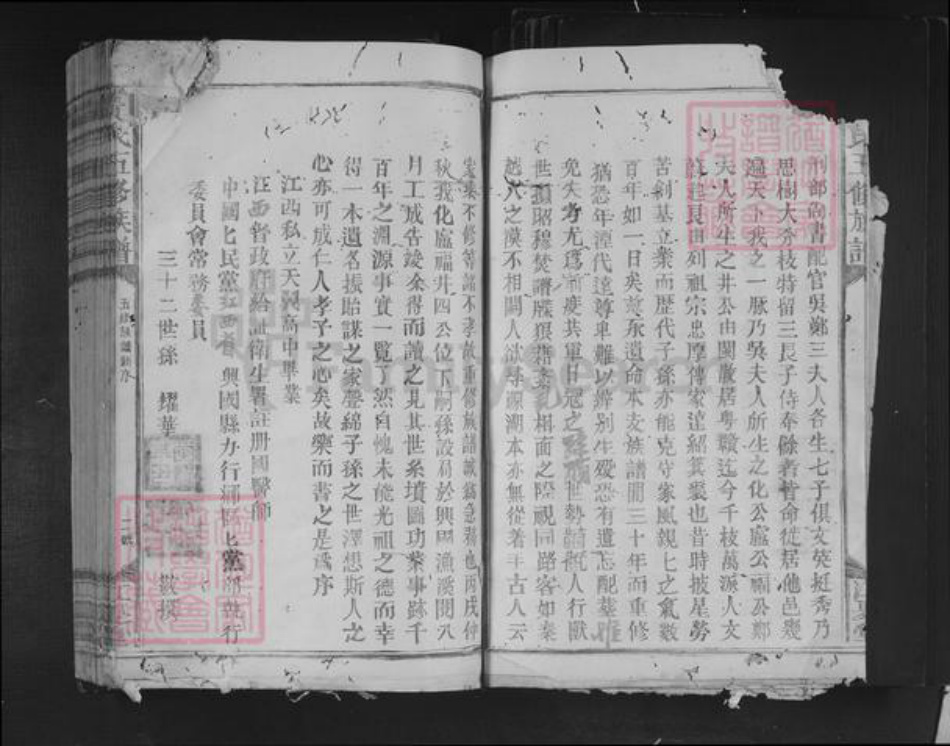 刑部尚書配官吳鄭三夫人各生七子俱文英挺秀乃
思樹大分枝特留三長子侍奉餘者皆命徙居他邑幾
遍天下我之一脈乃吳夫人所生之化公處公福公鄭
夫人所生之井公由閩散居粤贛迄今千枝萬派人文
良由列祖宗忠厚傳家遠紹箕裘也昔時披星勞
苦創基立業而歷代子孫亦能克守家風親七之氣數
百年如一日矣尊永遺命本支族譜閒三十年而重修
猶恐年湮代遠尊卑難以辨别生歿恐有遺忘配墓
免失考尤為前度共軍廿冠之 世勢 人行獸
世 昭穆焚譜牒 相面之際視同路客如秦
越人之漠不相關人欲尋源溯本亦無從着手古人云
家乘不修等諸不孝故重修族譜誠為急務也丙戌仲
秋我化處福井四公位下嗣孫設局於興國漁溪閱九
月工成告竣余得而讀之見其世系墳圖功業事跡千
百年之淵源事實一覽了然自愧未能光祖之德而幸
得一本遺名振貽謀之家聲綿子孫之世澤想斯人之
心亦可成仁人孝子之心矣故樂而書之是為序
江西私立天翼高中畢業
江西省政府給証衛生署註册國醫師
中國七民黨江西省興國縣办行 七黨部執行
委員會常務委員
三十二世孫 燿華 敬撰
氏五修族譜
氏五修族譜
五修族譜新序